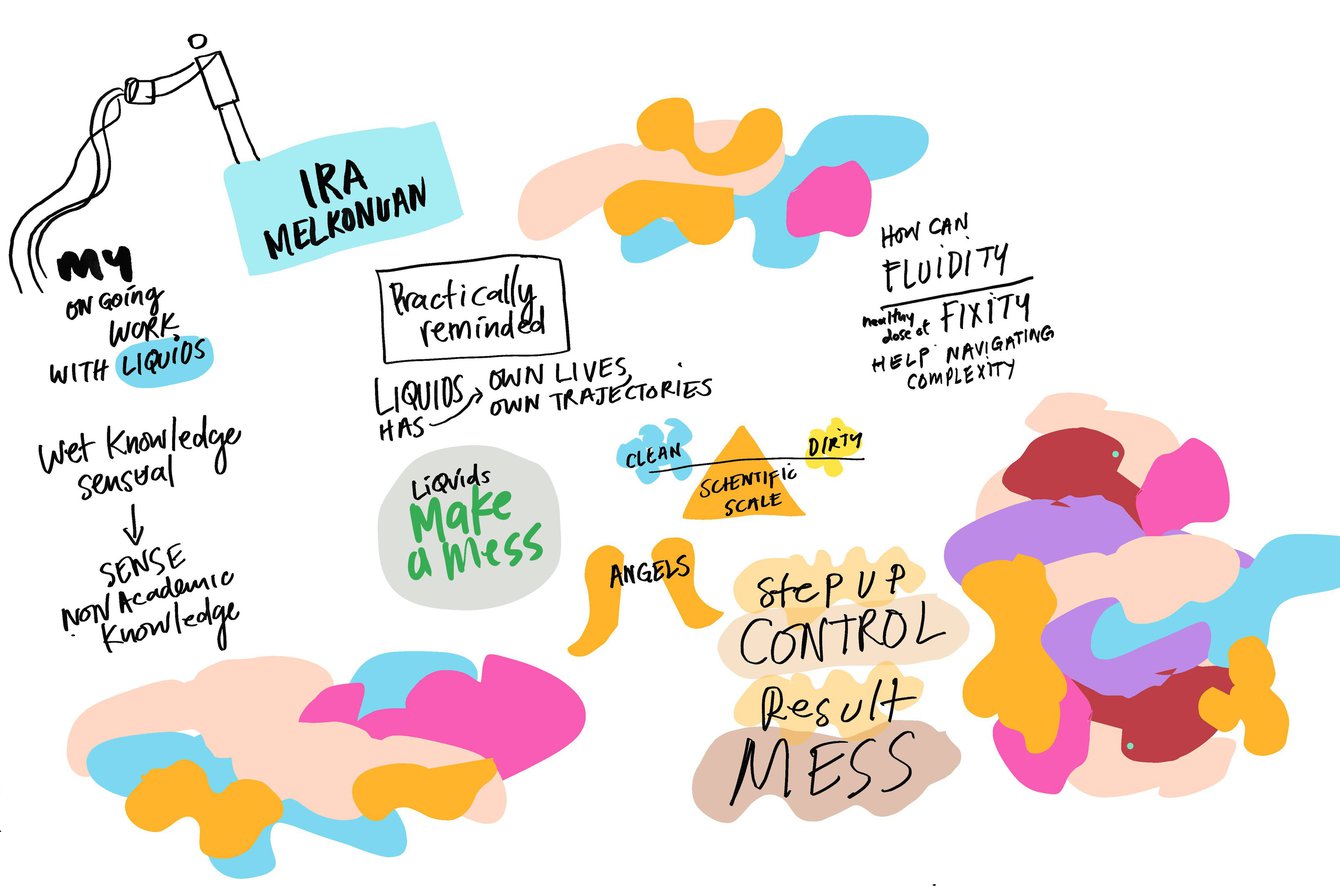 IRA
MELKONUAN
MY
ON GOING
WORK
WITH LIQUIDS
Wet Knowledge
sensual
SENSE
NON Academic
Knowledge
Practically
reminded
LIQUIDS
HAS
OWN LIVES,
OWN TRAJECTORIES
LiQuids
Make
a Mess
CLEAN
DIRTY
SCIENTIFIC
SCALE
ANGELS
Step UP
CONTROL
Result
MESS
HOW CAN
FLUIDITY
healthy
dose of
FIXITY
HELP NAVIGATING
COMPLEXITY